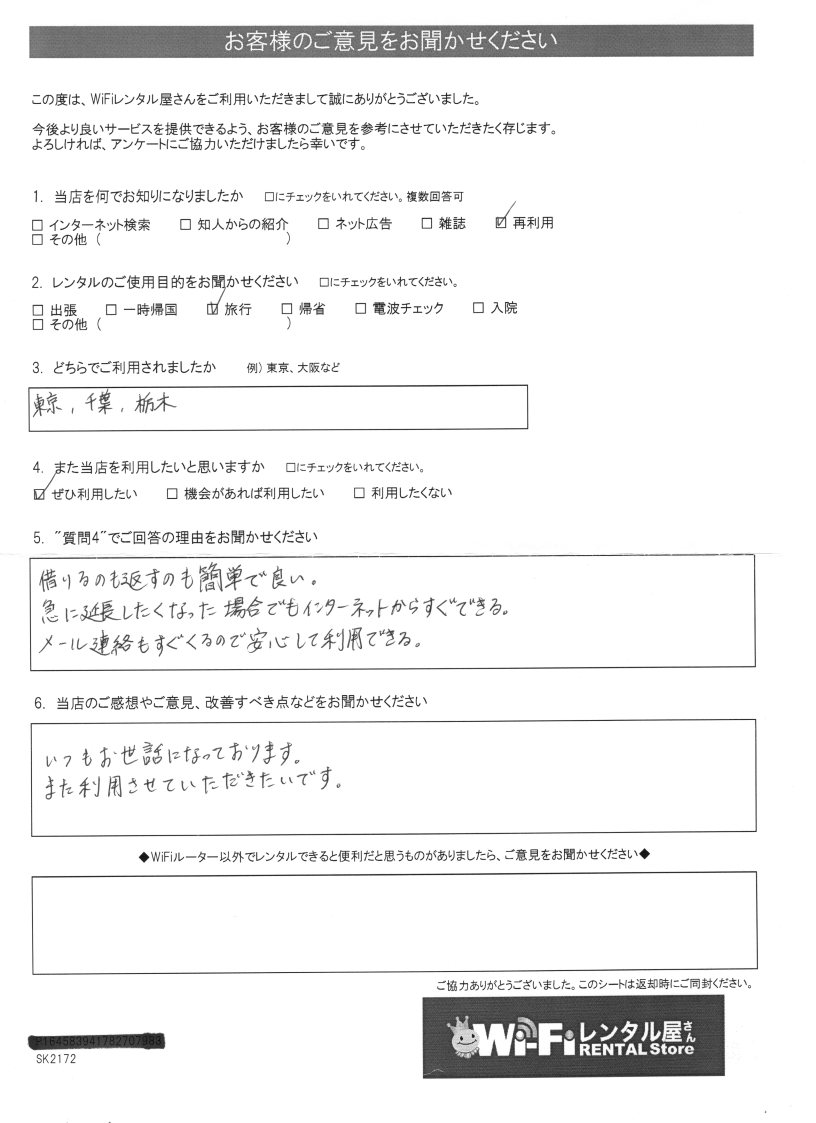 お客様のご意見をお聞かせください
この度は、WiFiレンタル屋さんをご利用いただきまして誠にありがとうございました。
今後より良いサービスを提供できるよう、お客様のご意見を参考にさせていただきたく存じます。
よろしければ、アンケートにご協力いただけましたら幸いです。
1. 当店を何でお知りになりましたか □にチェックをいれてください。複数回答可
□ インターネット検索 □ 知人からの紹介 □ ネット広告 □ 雑誌 ☑ 再利用
□ その他 ( )
2. レンタルのご使用目的をお聞かせください □にチェックをいれてください。
□ 出張 □ 一時帰国 ☑ 旅行 □ 帰省 □ 電波チェック □ 入院
□ その他 ( )
3. どちらでご利用されましたか 例) 東京、大阪など
東京, 千葉, 栃木
4. また当店を利用したいと思いますか □にチェックをいれてください。
☑ ぜひ利用したい □ 機会があれば利用したい □ 利用したくない
5. ″質問4″でご回答の理由をお聞かせください
借りるのも返すのも簡単で良い。
急に延長したくなった場合でもインターネットからすぐできる。
メール連絡もすぐくるので安心して利用できる。
6. 当店のご感想やご意見、改善すべき点などをお聞かせください
いつもお世話になっております。
また利用させていただきたいです。
◆WiFiルーター以外でレンタルできると便利だと思うものがありましたら、ご意見をお聞かせください◆
ご協力ありがとうございました。このシートは返却時にご同封ください。
Wi-Fiレンタル屋さん
RENTAL Store
SK2172